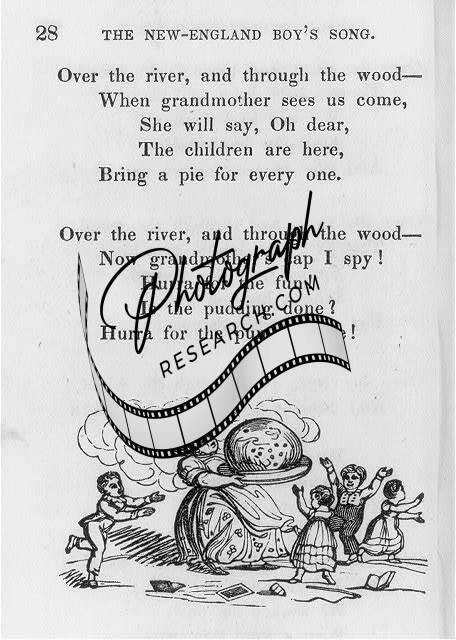 28 THE NEW-ENGLAND BOY'S SONG.
Over the river, and through the wood—
When grandmother sees us come,
She will say, Oh dear,
The children are here,
Bring a pie for every one.
Over the river, and through the wood—
Now grandmother's cap I spy!
Hurra for the fun!
Is the pudding done?
Hurra for the !
Photograph
RESEARCH.COM